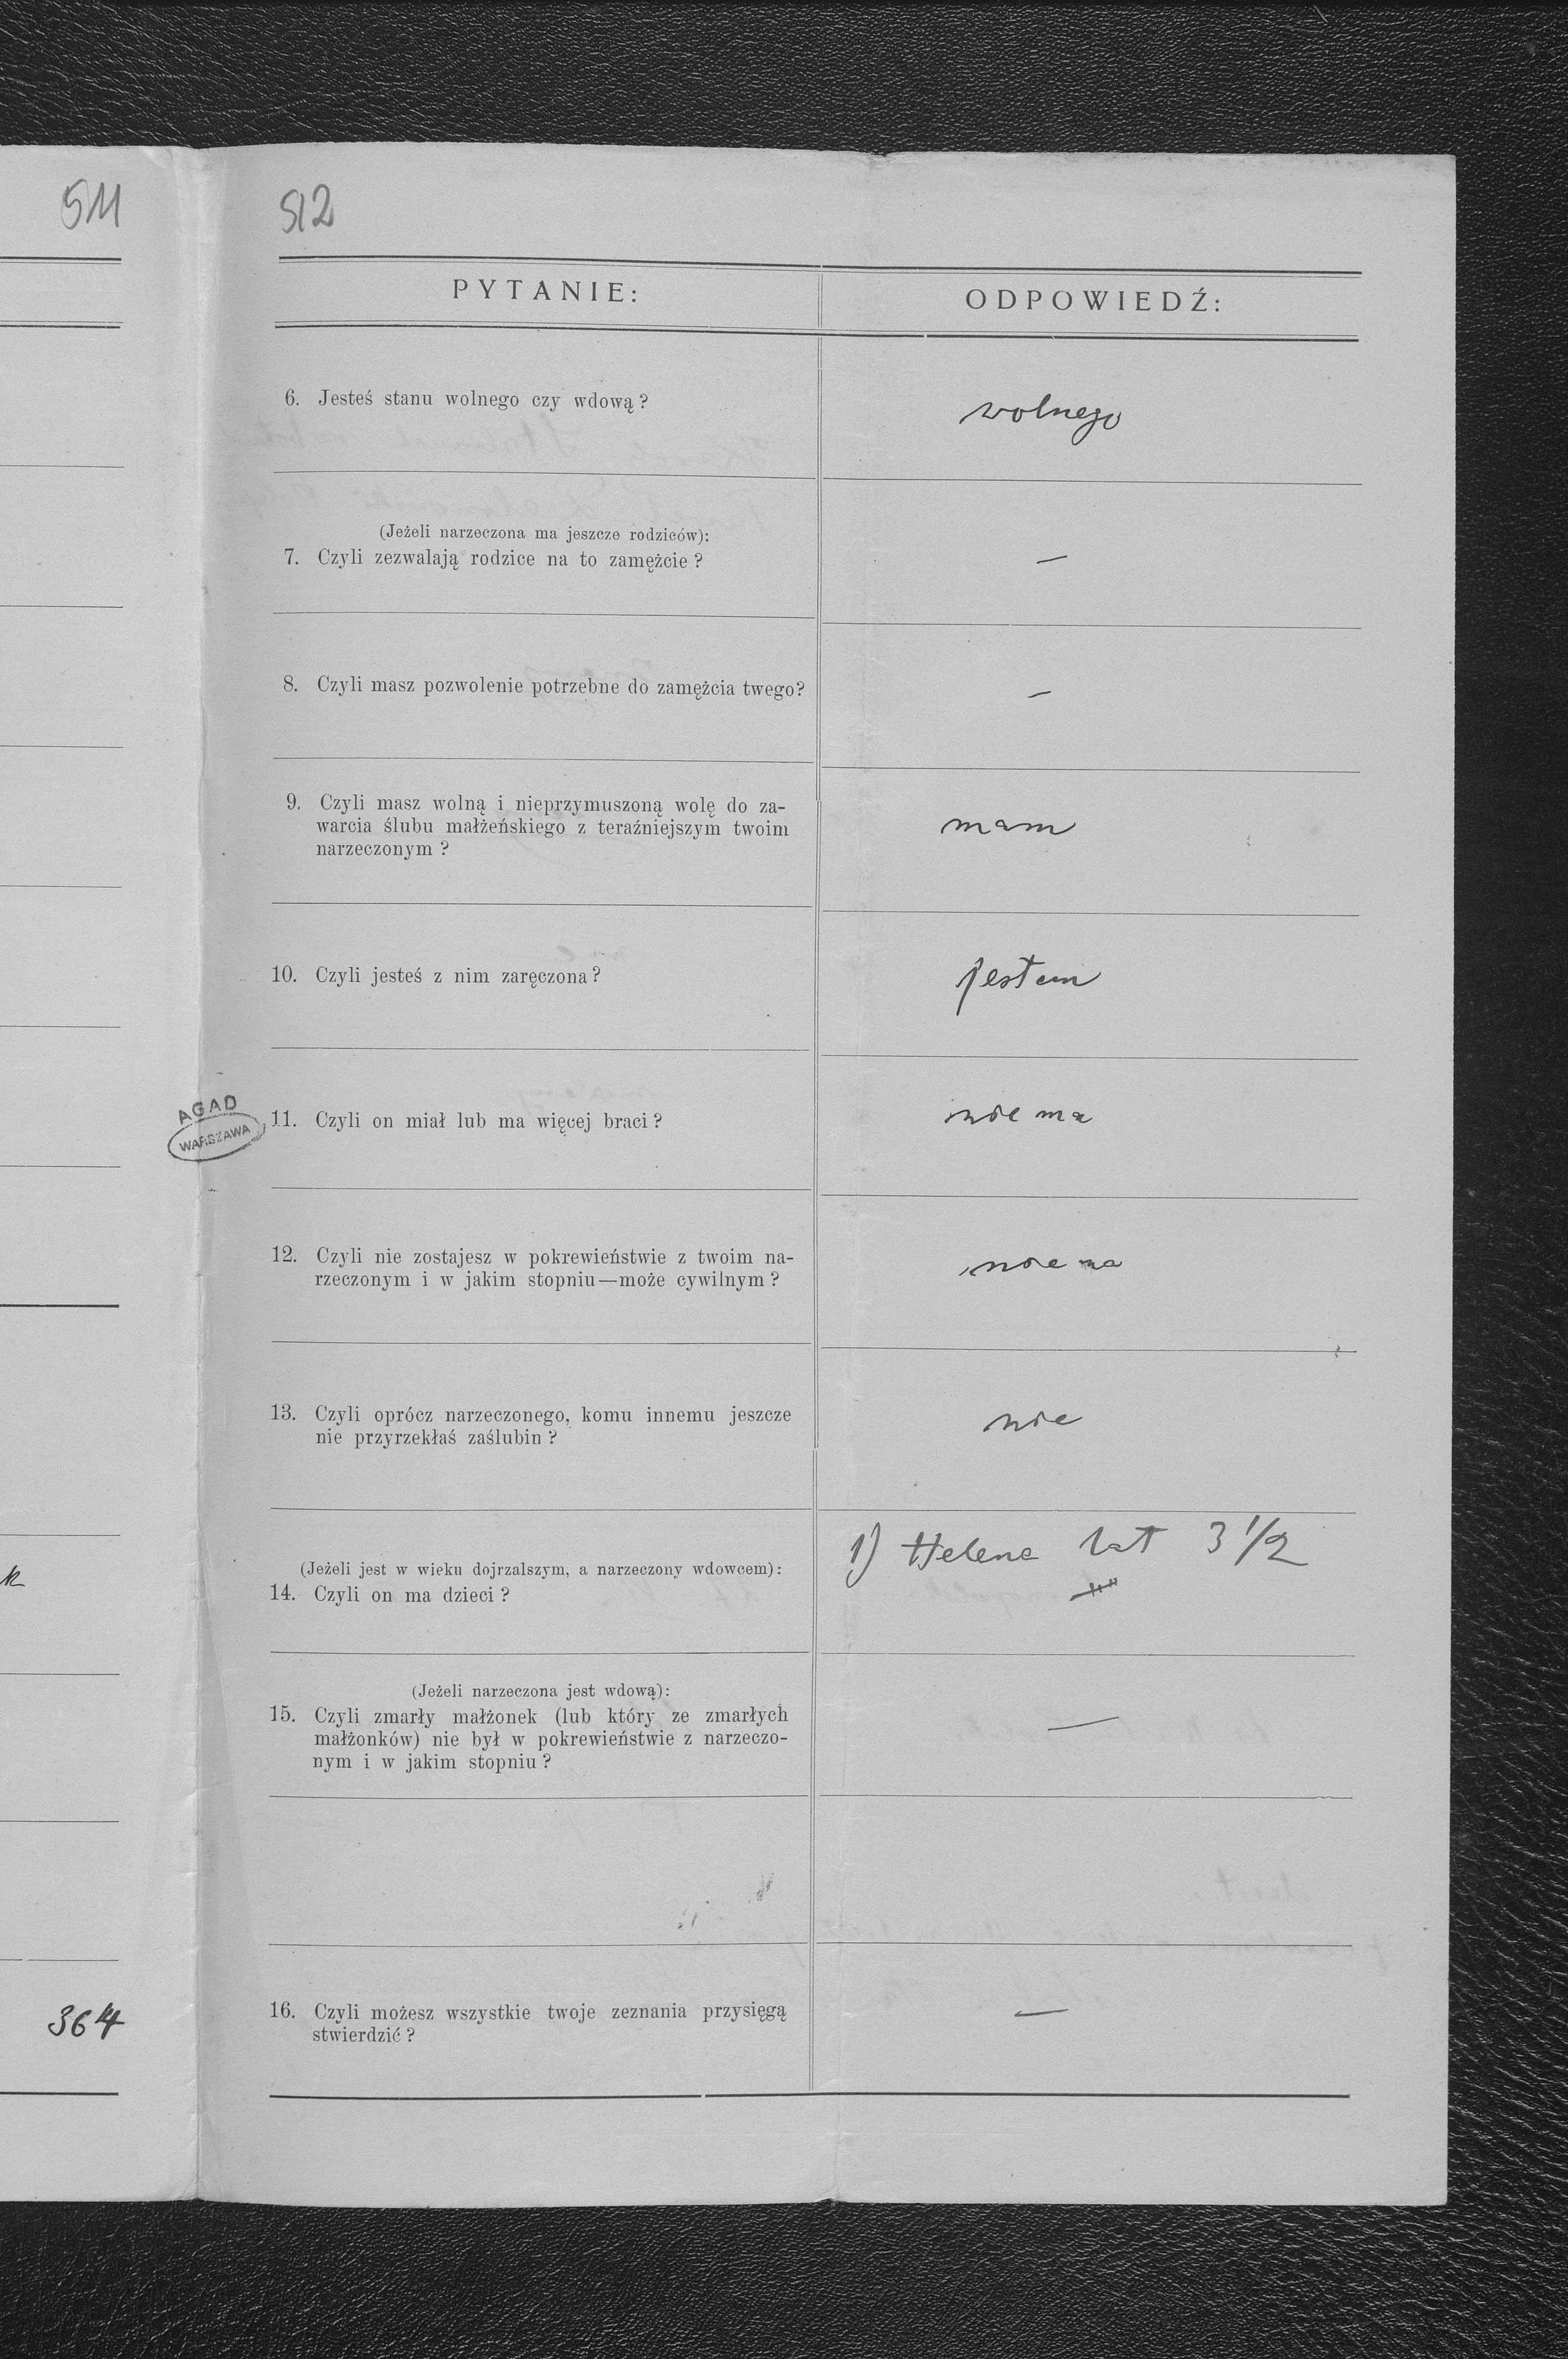 511
512
PYTANIE:
ODPOWIEDŹ:
6. Jesteś stanu wolnego czy wdową?
wolnego
(Jeżeli narzeczona ma jeszcze rodziców):
7. Czyli zezwalają rodzice na to zamężcie?
—
8. Czyli masz pozwolenie potrzebne do zamężcia twego?
—
9. Czyli masz wolną i nieprzymuszoną wolę do za-
warcia ślubu małżeńskiego z teraźniejszym twoim
narzeczonym?
mam
10. Czyli jesteś z nim zaręczona?
jestem
AGAD
WARSZAWA
11. Czyli on miał lub ma więcej braci?
nie ma
12. Czyli nie zostajesz w pokrewieństwie z twoim na-
rzeczonym i w jakim stopniu—może cywilnym?
nie ma
13. Czyli oprócz narzeczonego, komu innemu jeszcze
nie przyrzekłaś zaślubin?
nie
(Jeżeli jest w wieku dojrzalszym, a narzeczony wdowcem):
14. Czyli on ma dzieci?
1) Helena lat 3 1/2
(Jeżeli narzeczona jest wdową):
15. Czyli zmarły małżonek (lub który ze zmarłych
małżonków) nie był w pokrewieństwie z narzeczo-
nym i w jakim stopniu?
—
16. Czyli możesz wszystkie twoje zeznania przysięgą
stwierdzić?
—
364